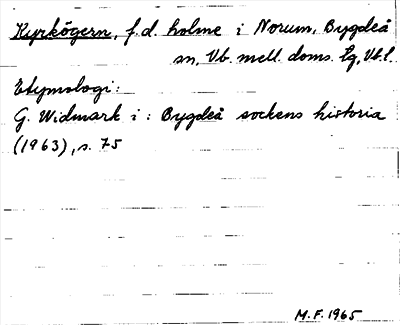 Kyrkögern, f.d. holme i Norum, Bygdeå
sn, Vb. mell. doms. tg, Vb.l.
Etymologi:
G. Widmark i: Bygdeå sockens historia
(1963), s. 75
M.F. 1965